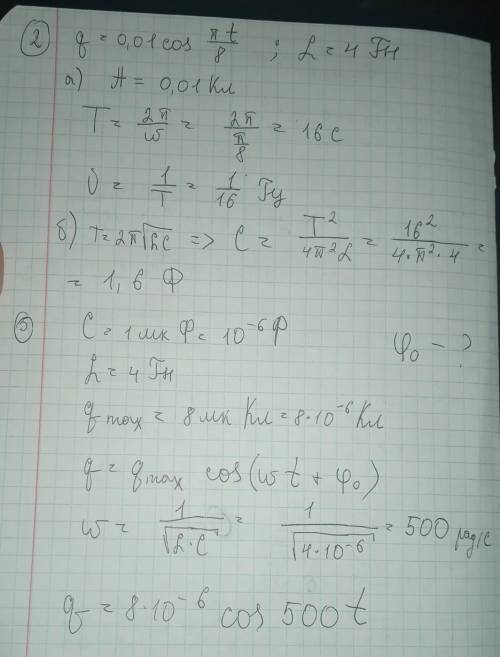 ② q = 0,01 cos πt/8 ; L = 4 Гн
а) A = 0,01 Кл
T = 2π/ω = 2π/(π/8) = 16 с
ν = 1/T = 1/16 Гц
б) T = 2π√LC => C = T²/4π²L = 16²/4·π²·4 =
= 1,6 Ф
⑤ C = 1 мк Ф = 10⁻⁶ Ф
φ₀ - ?
L = 4 Гн
q max = 8 мк Кл = 8·10⁻⁶ Кл
q = q max cos(ωt + φ₀)
ω = 1/√L·C = 1/√4·10⁻⁶ = 500 рад/с
q = 8·10⁻⁶ cos 500t